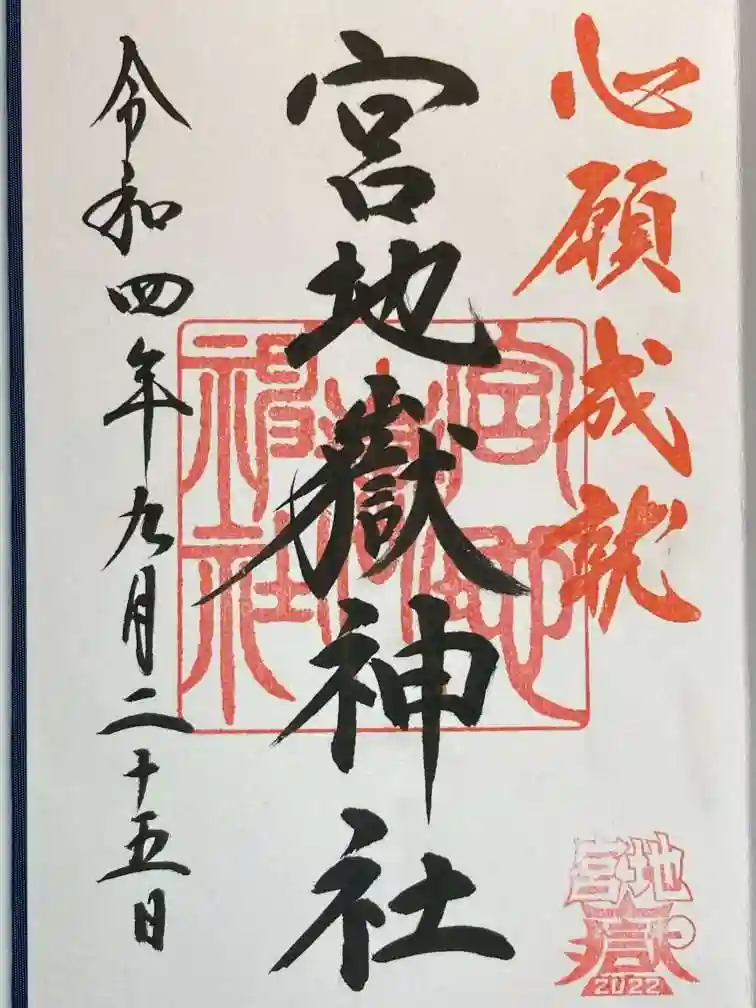 心願成就
宮地嶽神社
宮地嶽神社
令和四年九月二十五日
宮地嶽
2022